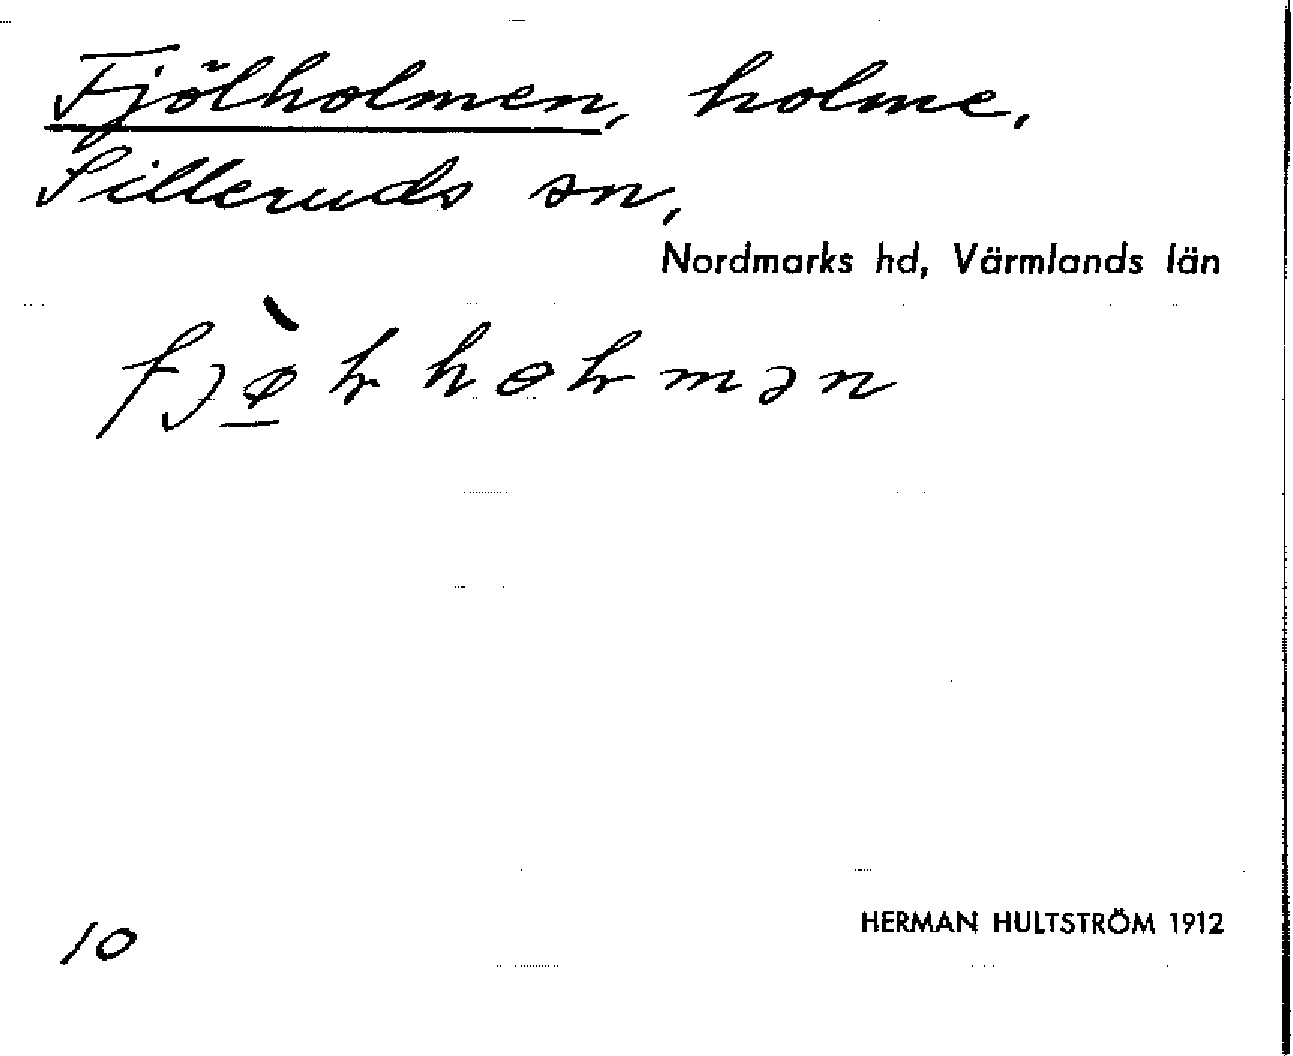 Fjölholmen, holme,
Silleruds sn,
Nordmarks hd, Värmlands län
10
HERMAN HULTSTRÖM 1912